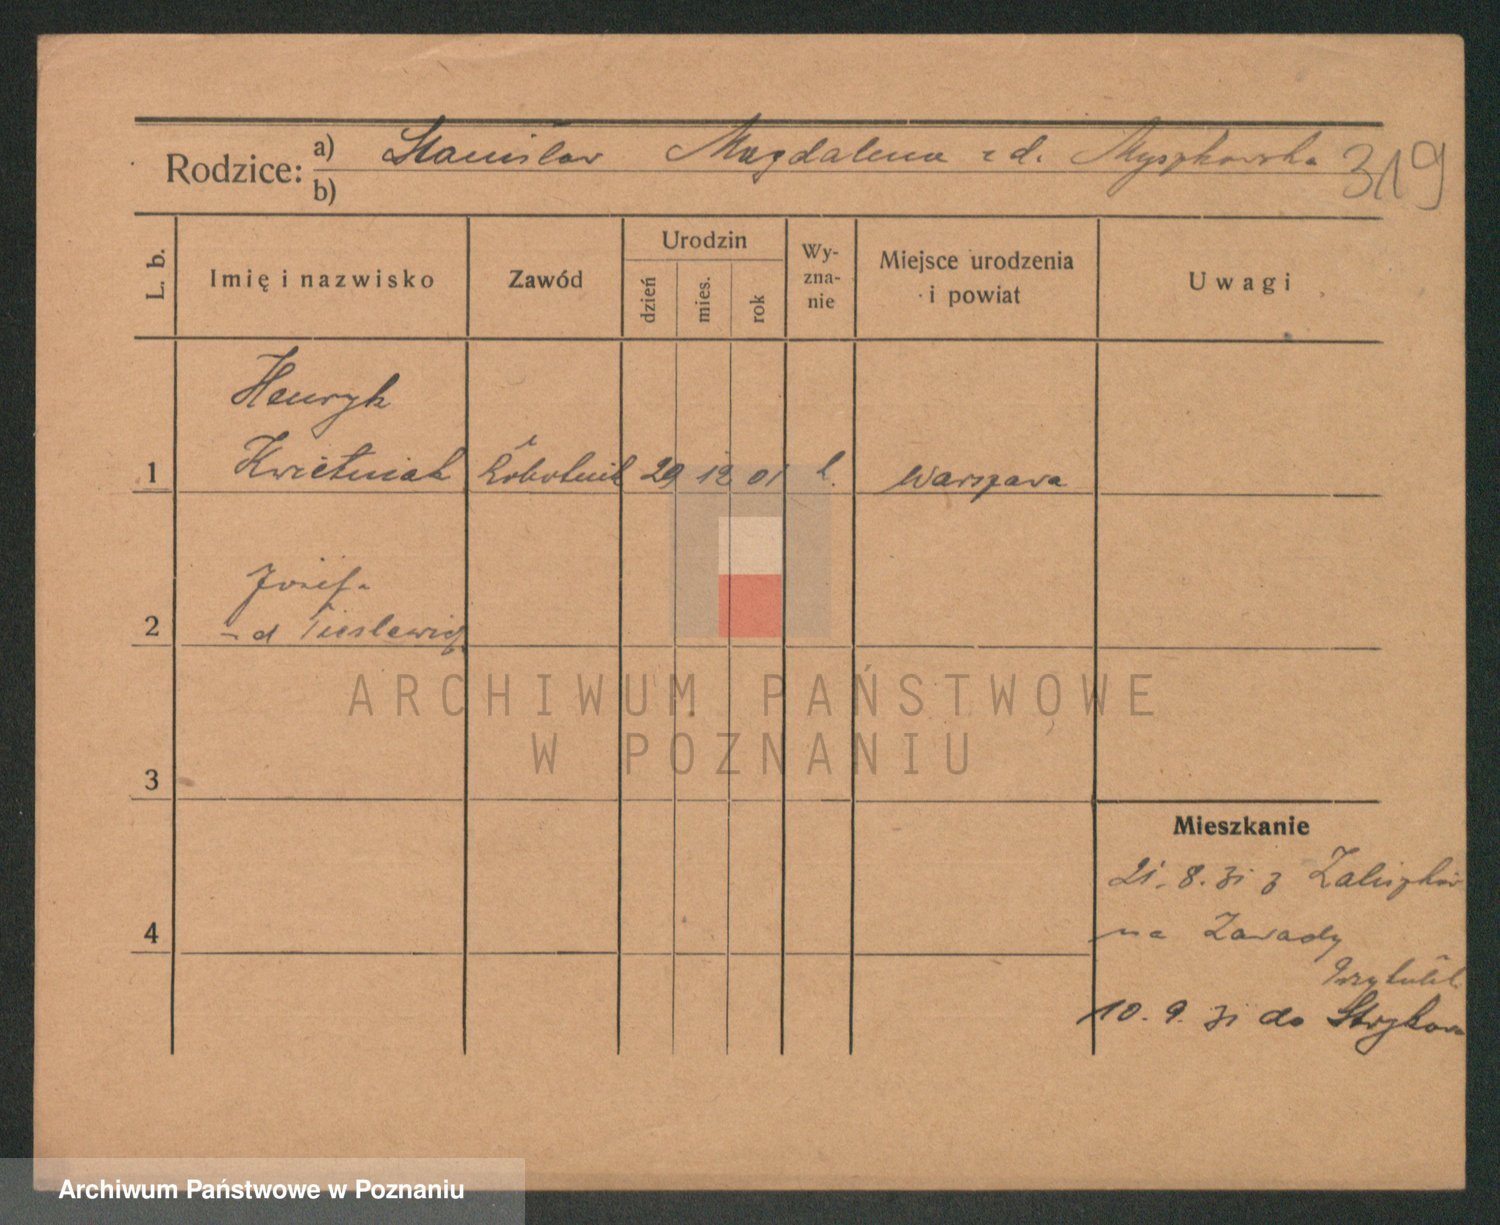 Rodzice: a) Stanisław Magdalena z d. Myszkowska 319
b)
L. b.
Imię i nazwisko
Zawód
Urodzin
dzień
mies.
rok
Wy-
zna-
nie
Miejsce urodzenia
i powiat
Uwagi
Henryk
1 Kwietniak Robotnik 29 12 01 k. Warszawa
Józefa
2 z d
3
Mieszkanie
21. 8. 31 z
na Zawady
4
10. 9. 31 do Strykowa
ARCHIWUM PAŃSTWOWE
W POZNANIU
Archiwum Państwowe w Poznaniu